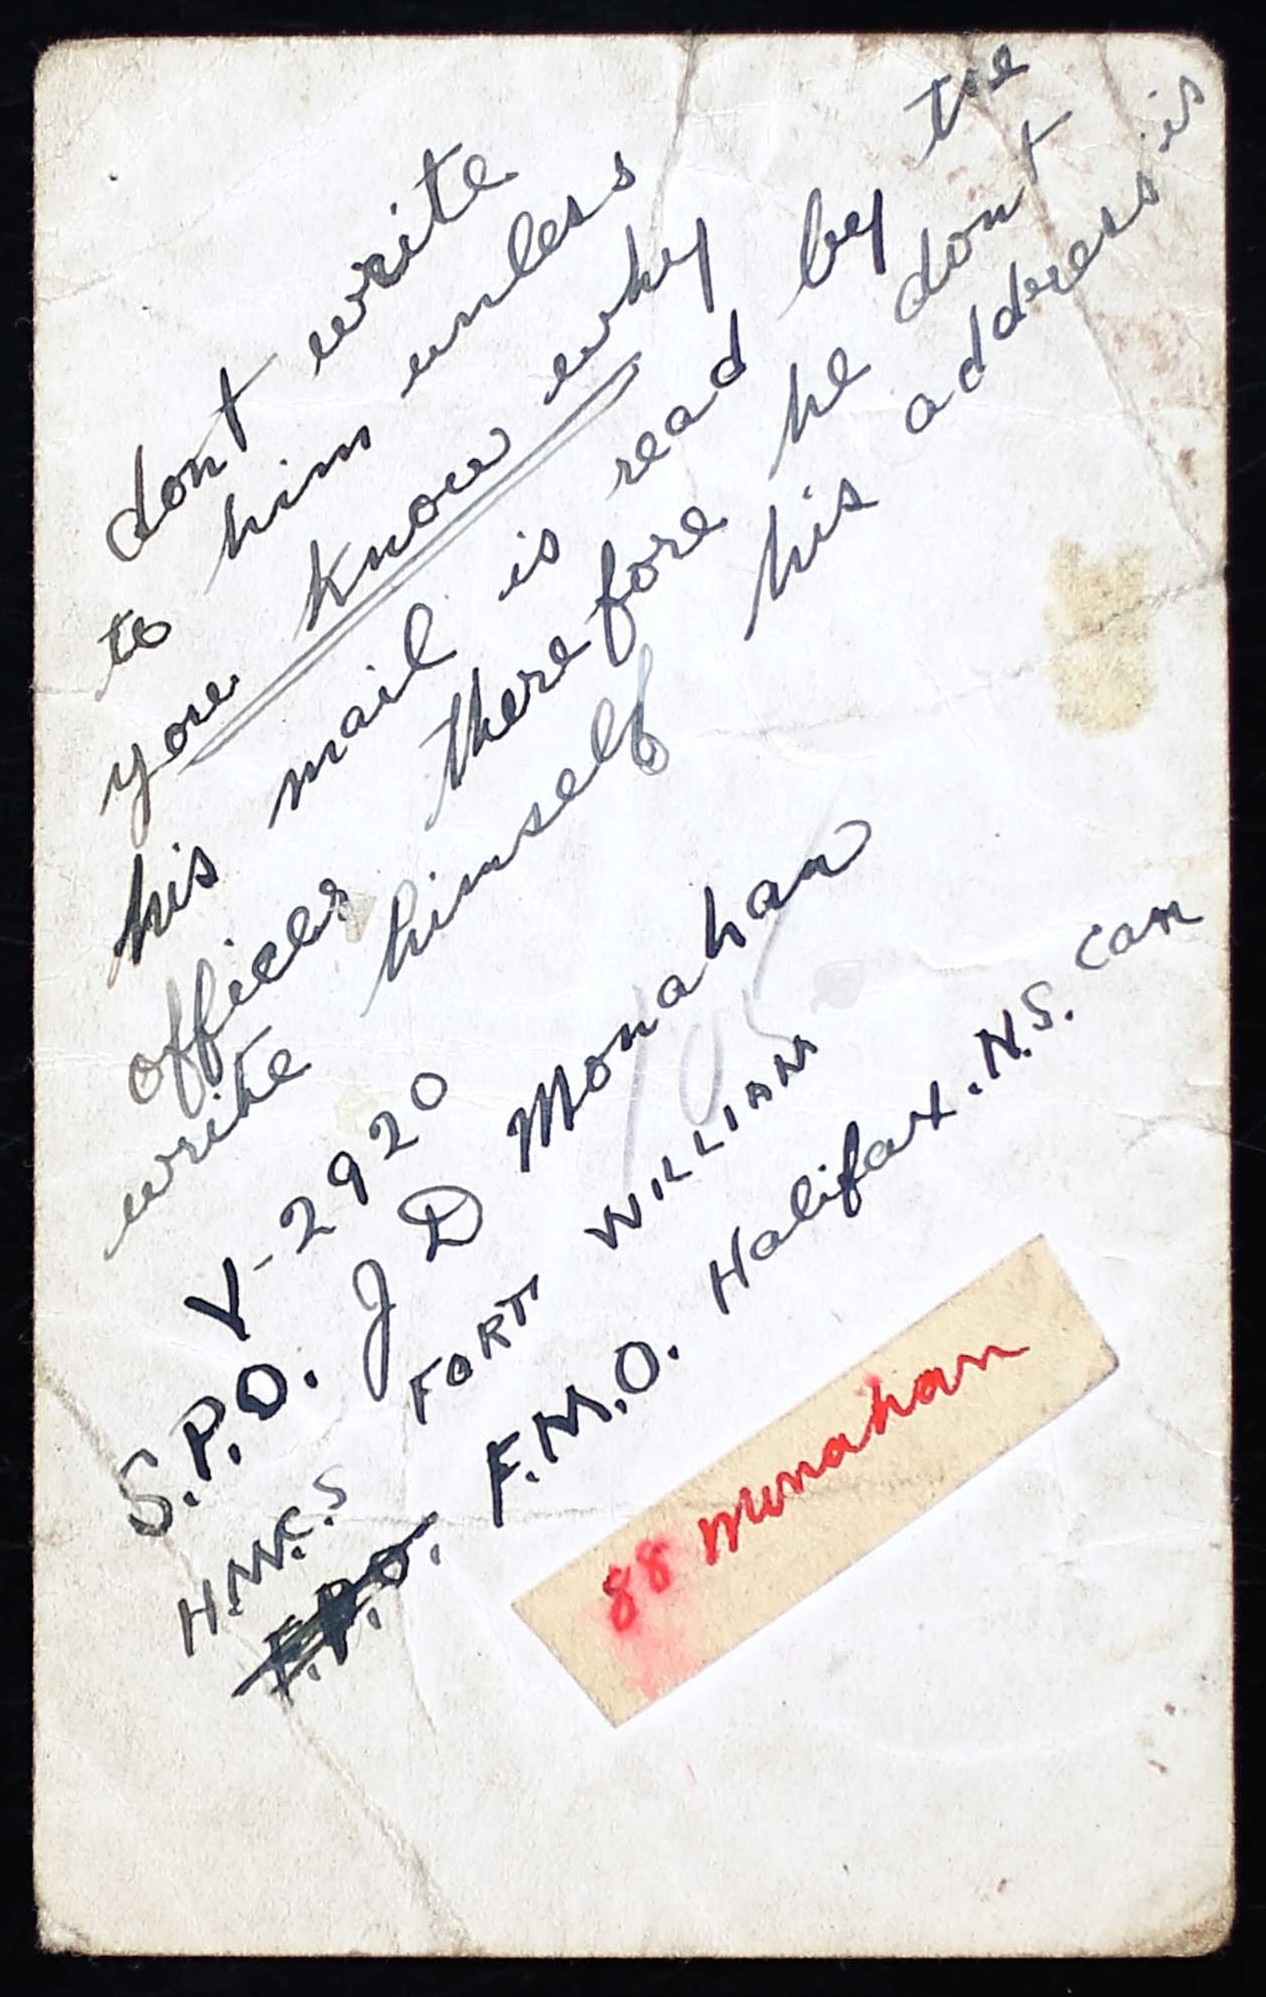 dont write
to him unless
you know why
his mail is read by the
officer therefore he dont
write himself his address is
V-2920
S.P.O. J D Monahan
H.M.C.S FORT WILLIAM
F.P.O. F.M.O. Halifax. N.S. Can
105
88 Monahan